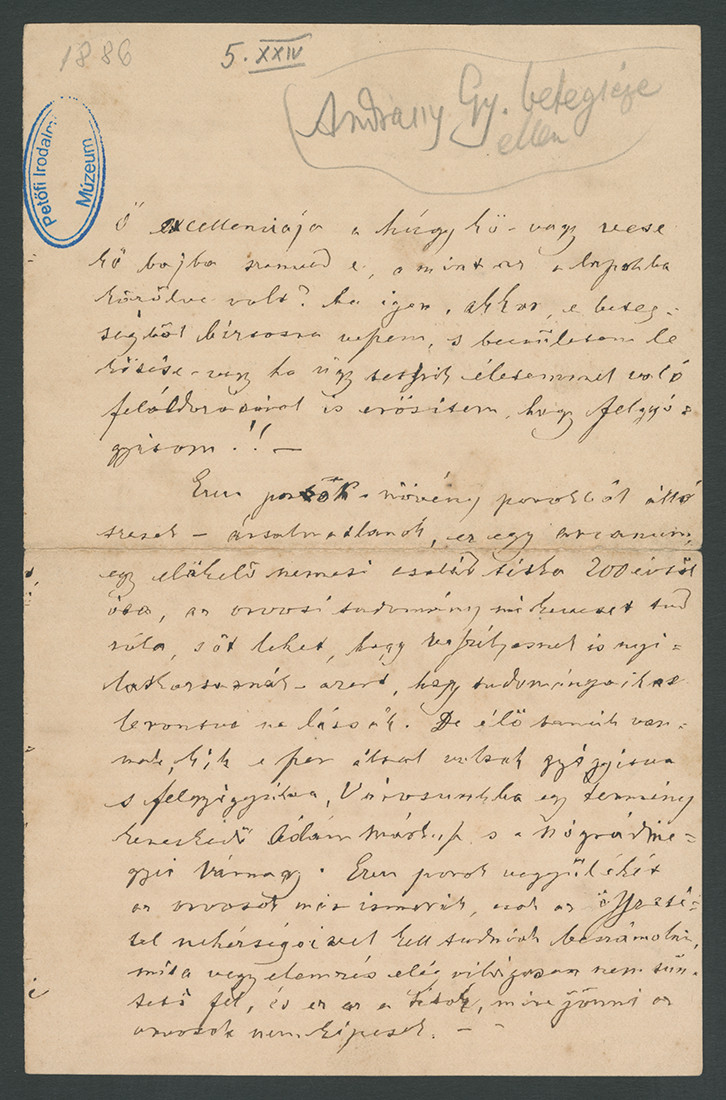 1886
5. XXIV
Andrássy Gy. betegsége
ellen
Petőfi Irodalmi
Múzeum
Ő excellenciája a húgy kő - vagy vese
kő bajba szenved e, a mint az a lapokba
közölve volt? ha igen, akkor, e beteg-
ségből biztosra veszem, s becsületem le
kötése - vagy ha úgy tetszik életemmel való
feláldozásával is erősítem, hogy felgyó-
gyítom!! -
Ezen porok - növény porokból álló
szerek - ártalmatlanok, ez egy arcanum,
egy előkelő nemesi család titka 200 évtől
óta, az orvosi tudomány mi keveset tud
róla, sőt lehet, hogy veszélyesnek is nyi-
latkoztatnák - azért, hogy tudományaikat
lerontva ne lássák. De élő tanúk van-
nak, kik e por által voltak gyógyítva
s felgyógyítva, Városunkba egy termény
kereskedő Ádám Márk, s a Nógrádme-
gyei Várnagy. Ezen porok vegyülékét
az orvosok már ismerik, csak az
nehézségeivel kell tudniok beszámolni,
mit a vegyelemzés elég világosan nem tün-
tető fel, és ez az a titok, mire jönni az
orvosok nem képesek. - -